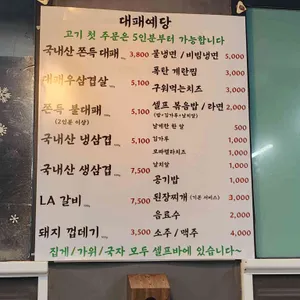 대패예당
고기 첫 주문은 5인분부터 가능합니다
국내산 쫀득 대패 3,800
대패우삼겹살 5,100
쫀득 불대패 5,100
(2인분 이상)
국내산 냉삼겹 5,100
국내산 생삼겹 7,500
LA 갈비 7,500
돼지 껍데기 3,500
물냉면 / 비빔냉면 5,000
폭탄 계란찜 3,000
구워먹는치즈 3,000
셀프 볶음밥 / 라면 2,000
(밥+김가루+날치알)
날계란 한 알 500
김가루 1,000
모짜렐라치즈 1,000
날치알 1,000
공기밥 1,000
된장찌개 (기본 서비스) 3,000
음료수 2,000
소주 / 맥주 4,000
집게/가위/국자 모두 셀프바에 있습니다~